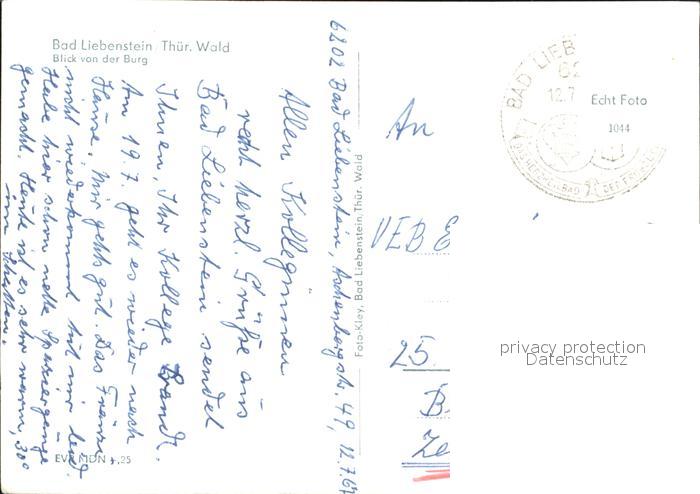 Bad Liebenstein Thür. Wald
Blick von der Burg
6202 Bad Liebenstein, Aschenbergstr. 49, 12.7.67
Allen Kolleginnen
recht herzl. Grüße aus
Bad Liebenstein sendet
Ihnen, Ihr Kollege Brandt.
Am 19.7. geht es wieder nach
Hause. Mir gehts gut. Das
nicht wiederkommt tut mir leid.
Habe hier schon nette Spaziergänge
gemacht. Heute ist es sehr warm, 30°
im Schatten.
EVP MDN -,25
Foto-Kley, Bad Liebenstein Thür. Wald
An
VEB E
25
B
Ze
BAD LIEB
62
12.7
Echt Foto
1044
privacy protection
Datenschutz